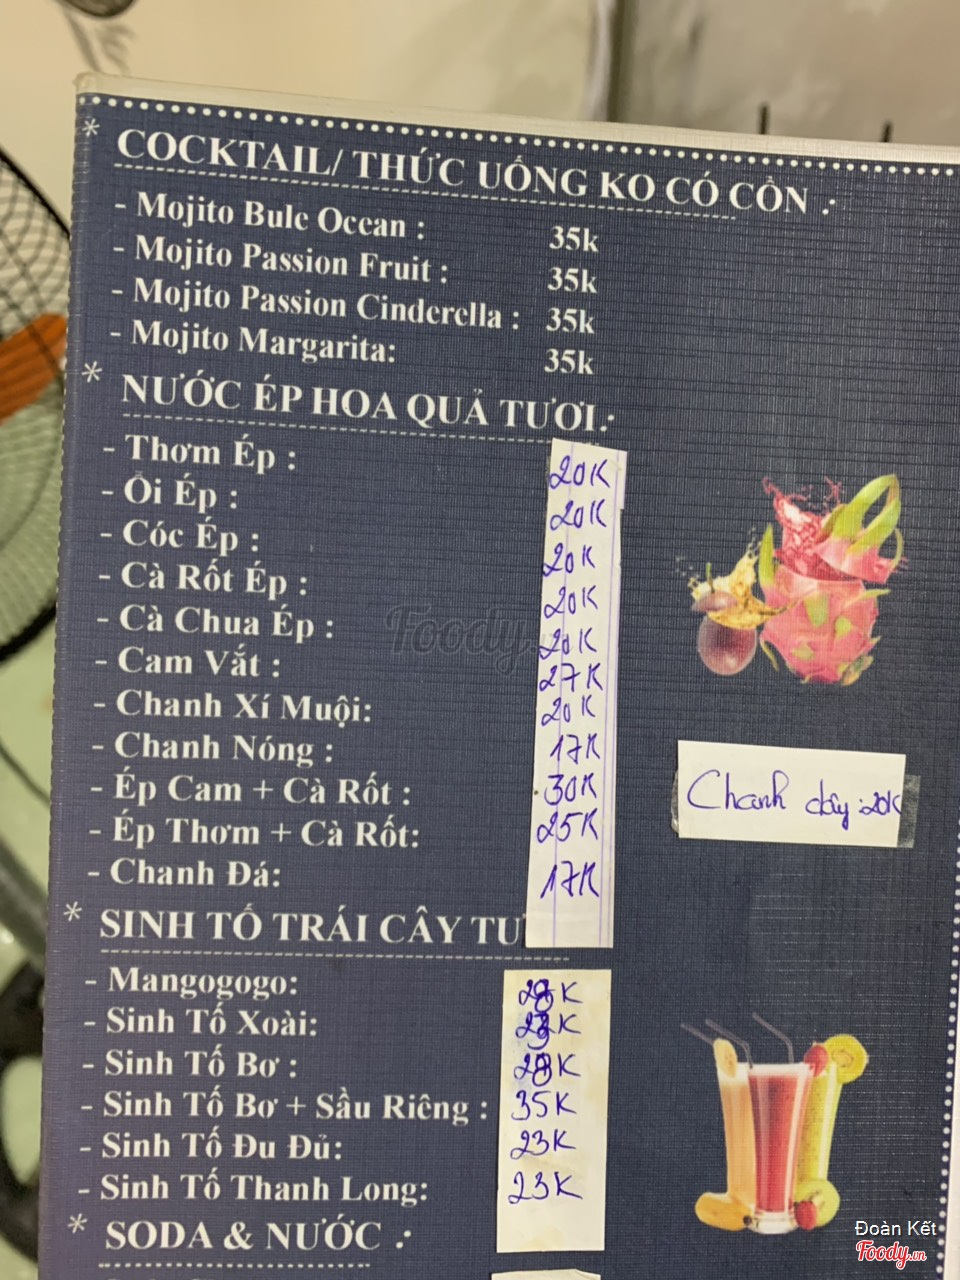 * COCKTAIL/ THỨC UỐNG KO CÓ CỒN :
- Mojito Bule Ocean : 35k
- Mojito Passion Fruit : 35k
- Mojito Passion Cinderella : 35k
- Mojito Margarita: 35k
* NƯỚC ÉP HOA QUẢ TƯƠI:
- Thơm Ép : 20K
- Ổi Ép : 20K
- Cóc Ép : 20K
- Cà Rốt Ép : 20K
- Cà Chua Ép : 20K
- Cam Vắt : 27K
- Chanh Xí Muội: 20K
- Chanh Nóng : 17K
- Ép Cam + Cà Rốt : 30K
- Ép Thơm + Cà Rốt: 25K
- Chanh Đá: 17K
Chanh dây : 20K
* SINH TỐ TRÁI CÂY TƯ
- Mangogogo: 28K
- Sinh Tố Xoài:
- Sinh Tố Bơ : 28K
- Sinh Tố Bơ + Sầu Riêng : 35K
- Sinh Tố Đu Đủ: 23K
- Sinh Tố Thanh Long: 23K
* SODA & NƯỚC :
Foody.vn
Đoàn Kết
Foody.vn